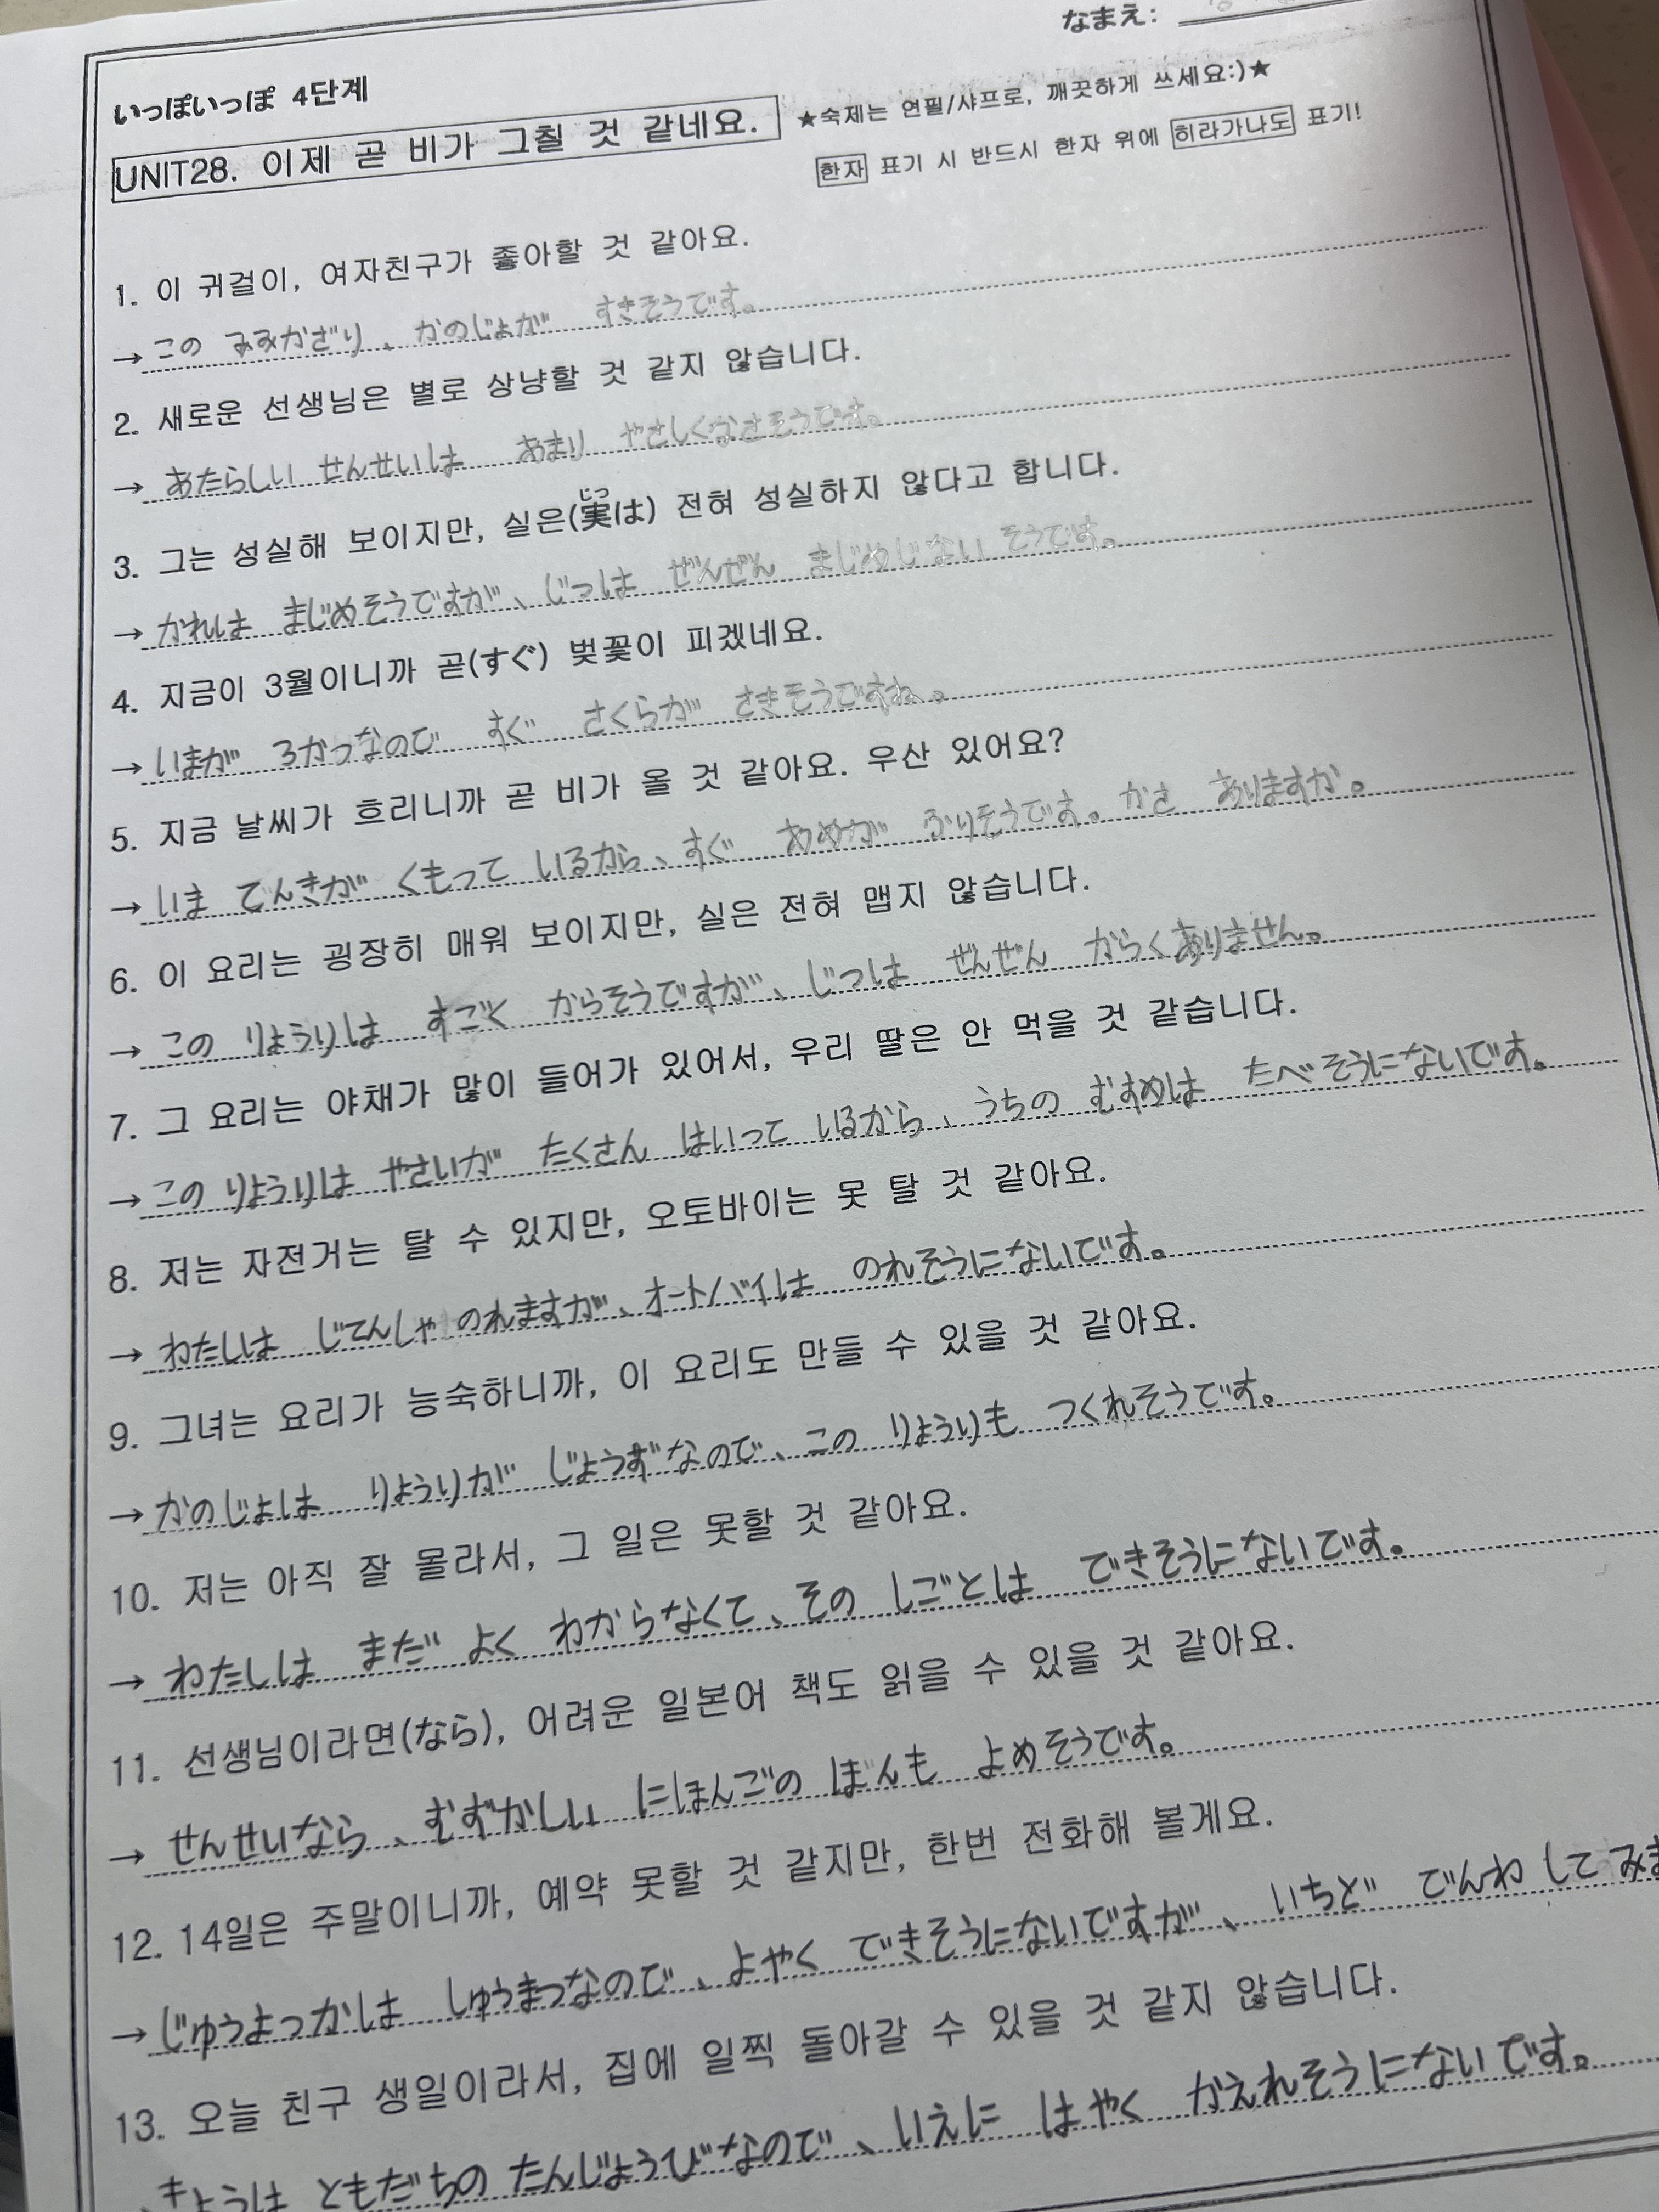 なまえ:
いっぽいっぽ 4단계
UNIT28. 이제 곧 비가 그칠 것 같네요.
★숙제는 연필/샤프로, 깨끗하게 쓰세요:)★
한자 표기 시 반드시 한자 위에 히라가나도 표기!
1. 이 귀걸이, 여자친구가 좋아할 것 같아요.
→ この みみかざり、かのじょが すきそうです。
2. 새로운 선생님은 별로 상냥할 것 같지 않습니다.
→ あたらしい せんせいは あまり やさしくなさそうです。
3. 그는 성실해 보이지만, 실은(実は) 전혀 성실하지 않다고 합니다.
じつ
→ かれは まじめそうですが、じつは ぜんぜん まじめじない そうです。
4. 지금이 3월이니까 곧(すぐ) 벚꽃이 피겠네요.
→ いまが 3かつなので すぐ さくらが さきそうですね。
5. 지금 날씨가 흐리니까 곧 비가 올 것 같아요. 우산 있어요?
→ いま てんきが くもって いるから、すぐ あめが ふりそうです。かさ ありますか。
6. 이 요리는 굉장히 매워 보이지만, 실은 전혀 맵지 않습니다.
→ この りょうりは すごく からそうですが、じつは ぜんぜん からくありません。
7. 그 요리는 야채가 많이 들어가 있어서, 우리 딸은 안 먹을 것 같습니다.
→ この りょうりは やさいが たくさん はいって いるから、うちの むすめは たべそうにないです。
8. 저는 자전거는 탈 수 있지만, 오토바이는 못 탈 것 같아요.
→ わたしは じてんしゃ のれますが、オートバイは のれそうにないです。
9. 그녀는 요리가 능숙하니까, 이 요리도 만들 수 있을 것 같아요.
→ かのじょは りょうりが じょうずなので、この りょうりも つくれそうです。
10. 저는 아직 잘 몰라서, 그 일은 못할 것 같아요.
→ わたしは まだ よく わからなくて、その しごとは できそうにないです。
11. 선생님이라면(なら), 어려운 일본어 책도 읽을 수 있을 것 같아요.
→ せんせいなら、むずかしい にほんごの ほんも よめそうです。
12. 14일은 주말이니까, 예약 못할 것 같지만, 한번 전화해 볼게요.
→ じゅうよっかは しゅうまつなので、よやく できそうにないですが、いちど でんわ して みま
13. 오늘 친구 생일이라서, 집에 일찍 돌아갈 수 있을 것 같지 않습니다.
きょうは ともだちの たんじょうびなので、いえに はやく かえれそうにないです。